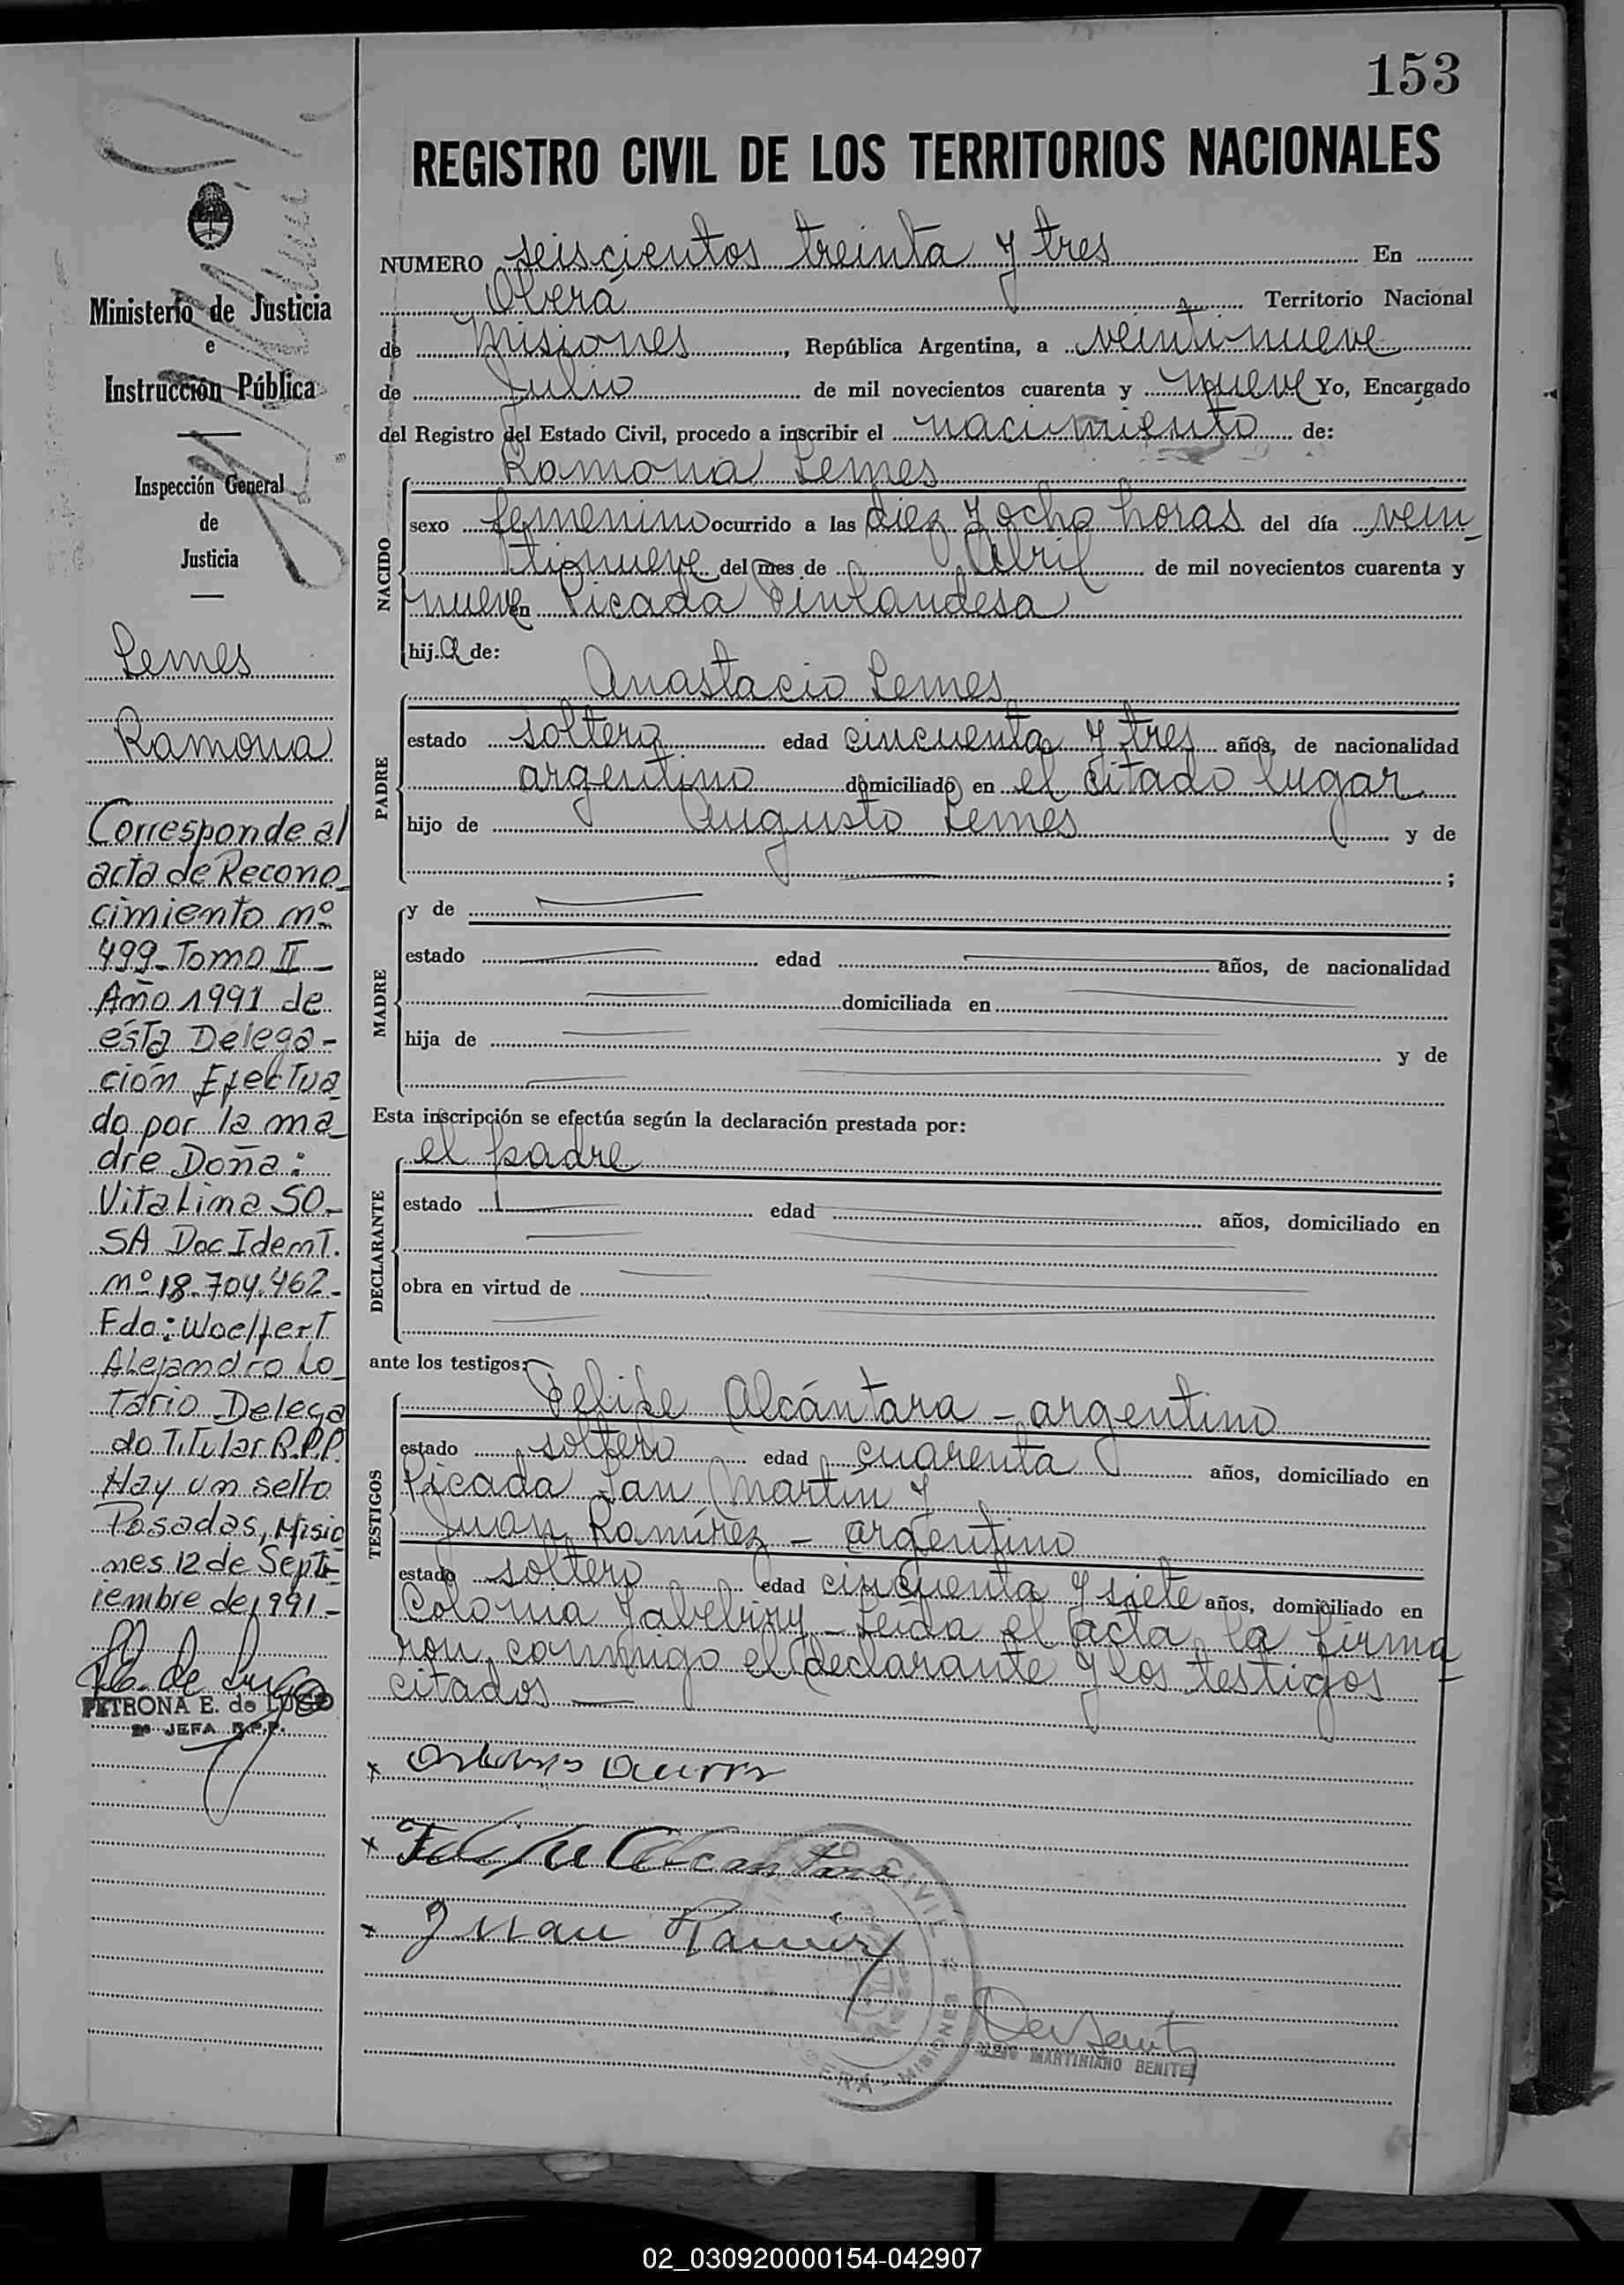 153
REGISTRO CIVIL DE LOS TERRITORIOS NACIONALES
Ministerio de Justicia
e
Instrucción Pública
Inspección General
de
Justicia
Lemes
Ramona
Corresponde al
acta de Recono_
cimiento nº
499_Tomo II_
Año 1991 de
ésta Delega-
ción Efectua_
do por la ma_
dre Doña:
Vitalina SO_
SA Doc Ident.
nº 18.704.462_
Fdo: Woelfert
Alejandro Lo_
tario Delega
do Titular R.P.P.
Hay un sello
Posadas, Misio
nes 12 de Septi-
iembre de 1991-
PETRONA E. de LUGO
2ª JEFA R.P.P.
NUMERO seiscientos treinta y tres En
Oberá Territorio Nacional
de Misiones, República Argentina, a veintinueve
de Julio de mil novecientos cuarenta y nueve Yo, Encargado
del Registro del Estado Civil, procedo a inscribir el nacimiento de:
Ramona Lemes
NACIDO
sexo femenino ocurrido a las diez y ocho horas del día vein_
tinueve del mes de Abril de mil novecientos cuarenta y
nueve en Picada Finlandesa
hija de:
Anastacio Lemes
PADRE
estado soltero edad cincuenta y tres años, de nacionalidad
argentino domiciliado en el citado lugar
hijo de Augusto Lemes y de
;
MADRE
y de
estado edad años, de nacionalidad
domiciliada en
hija de y de
Esta inscripción se efectúa según la declaración prestada por:
el padre
DECLARANTE
estado edad años, domiciliado en
obra en virtud de
ante los testigos:
Felipe Alcántara - argentino
TESTIGOS
estado soltero edad cuarenta años, domiciliado en
Picada San Martín y
Juan Ramírez - argentino
estado soltero edad cincuenta y siete años, domiciliado en
Colonia Yabebiry - Leida el acta, la firma_
ron conmigo el declarante y los testigos
citados —
Felipe Alcantara
Juan Ramirez
CIVIL
OBERA - MISIONES
MARTINIANO BENITEZ
02_030920000154-042907